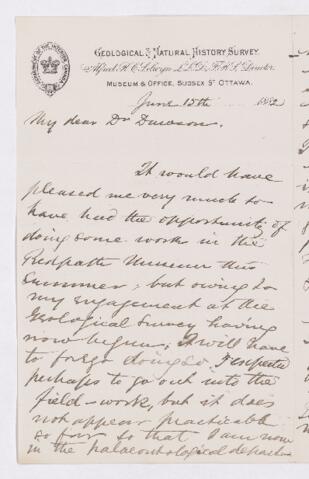 GEOLOGICAL & NATURAL HISTORY SURVEY.
Alfred R. C. Selwyn L.L.D., F.R.S., Director.
MUSEUM & OFFICE, SUSSEX ST OTTAWA.
June 15th 1882
My dear Dr Dawson.
It would have
pleased me very much to
have had the opportunity of
doing some work in the
Redpath Museum this
Summer; but owing to
my engagement at the
Geological Survey having
now begun, I will have
to forego doing so. I expected
perhaps to go out into the
field-work, but it does
not appear practicable
so far so that I am now
in the palaeontological